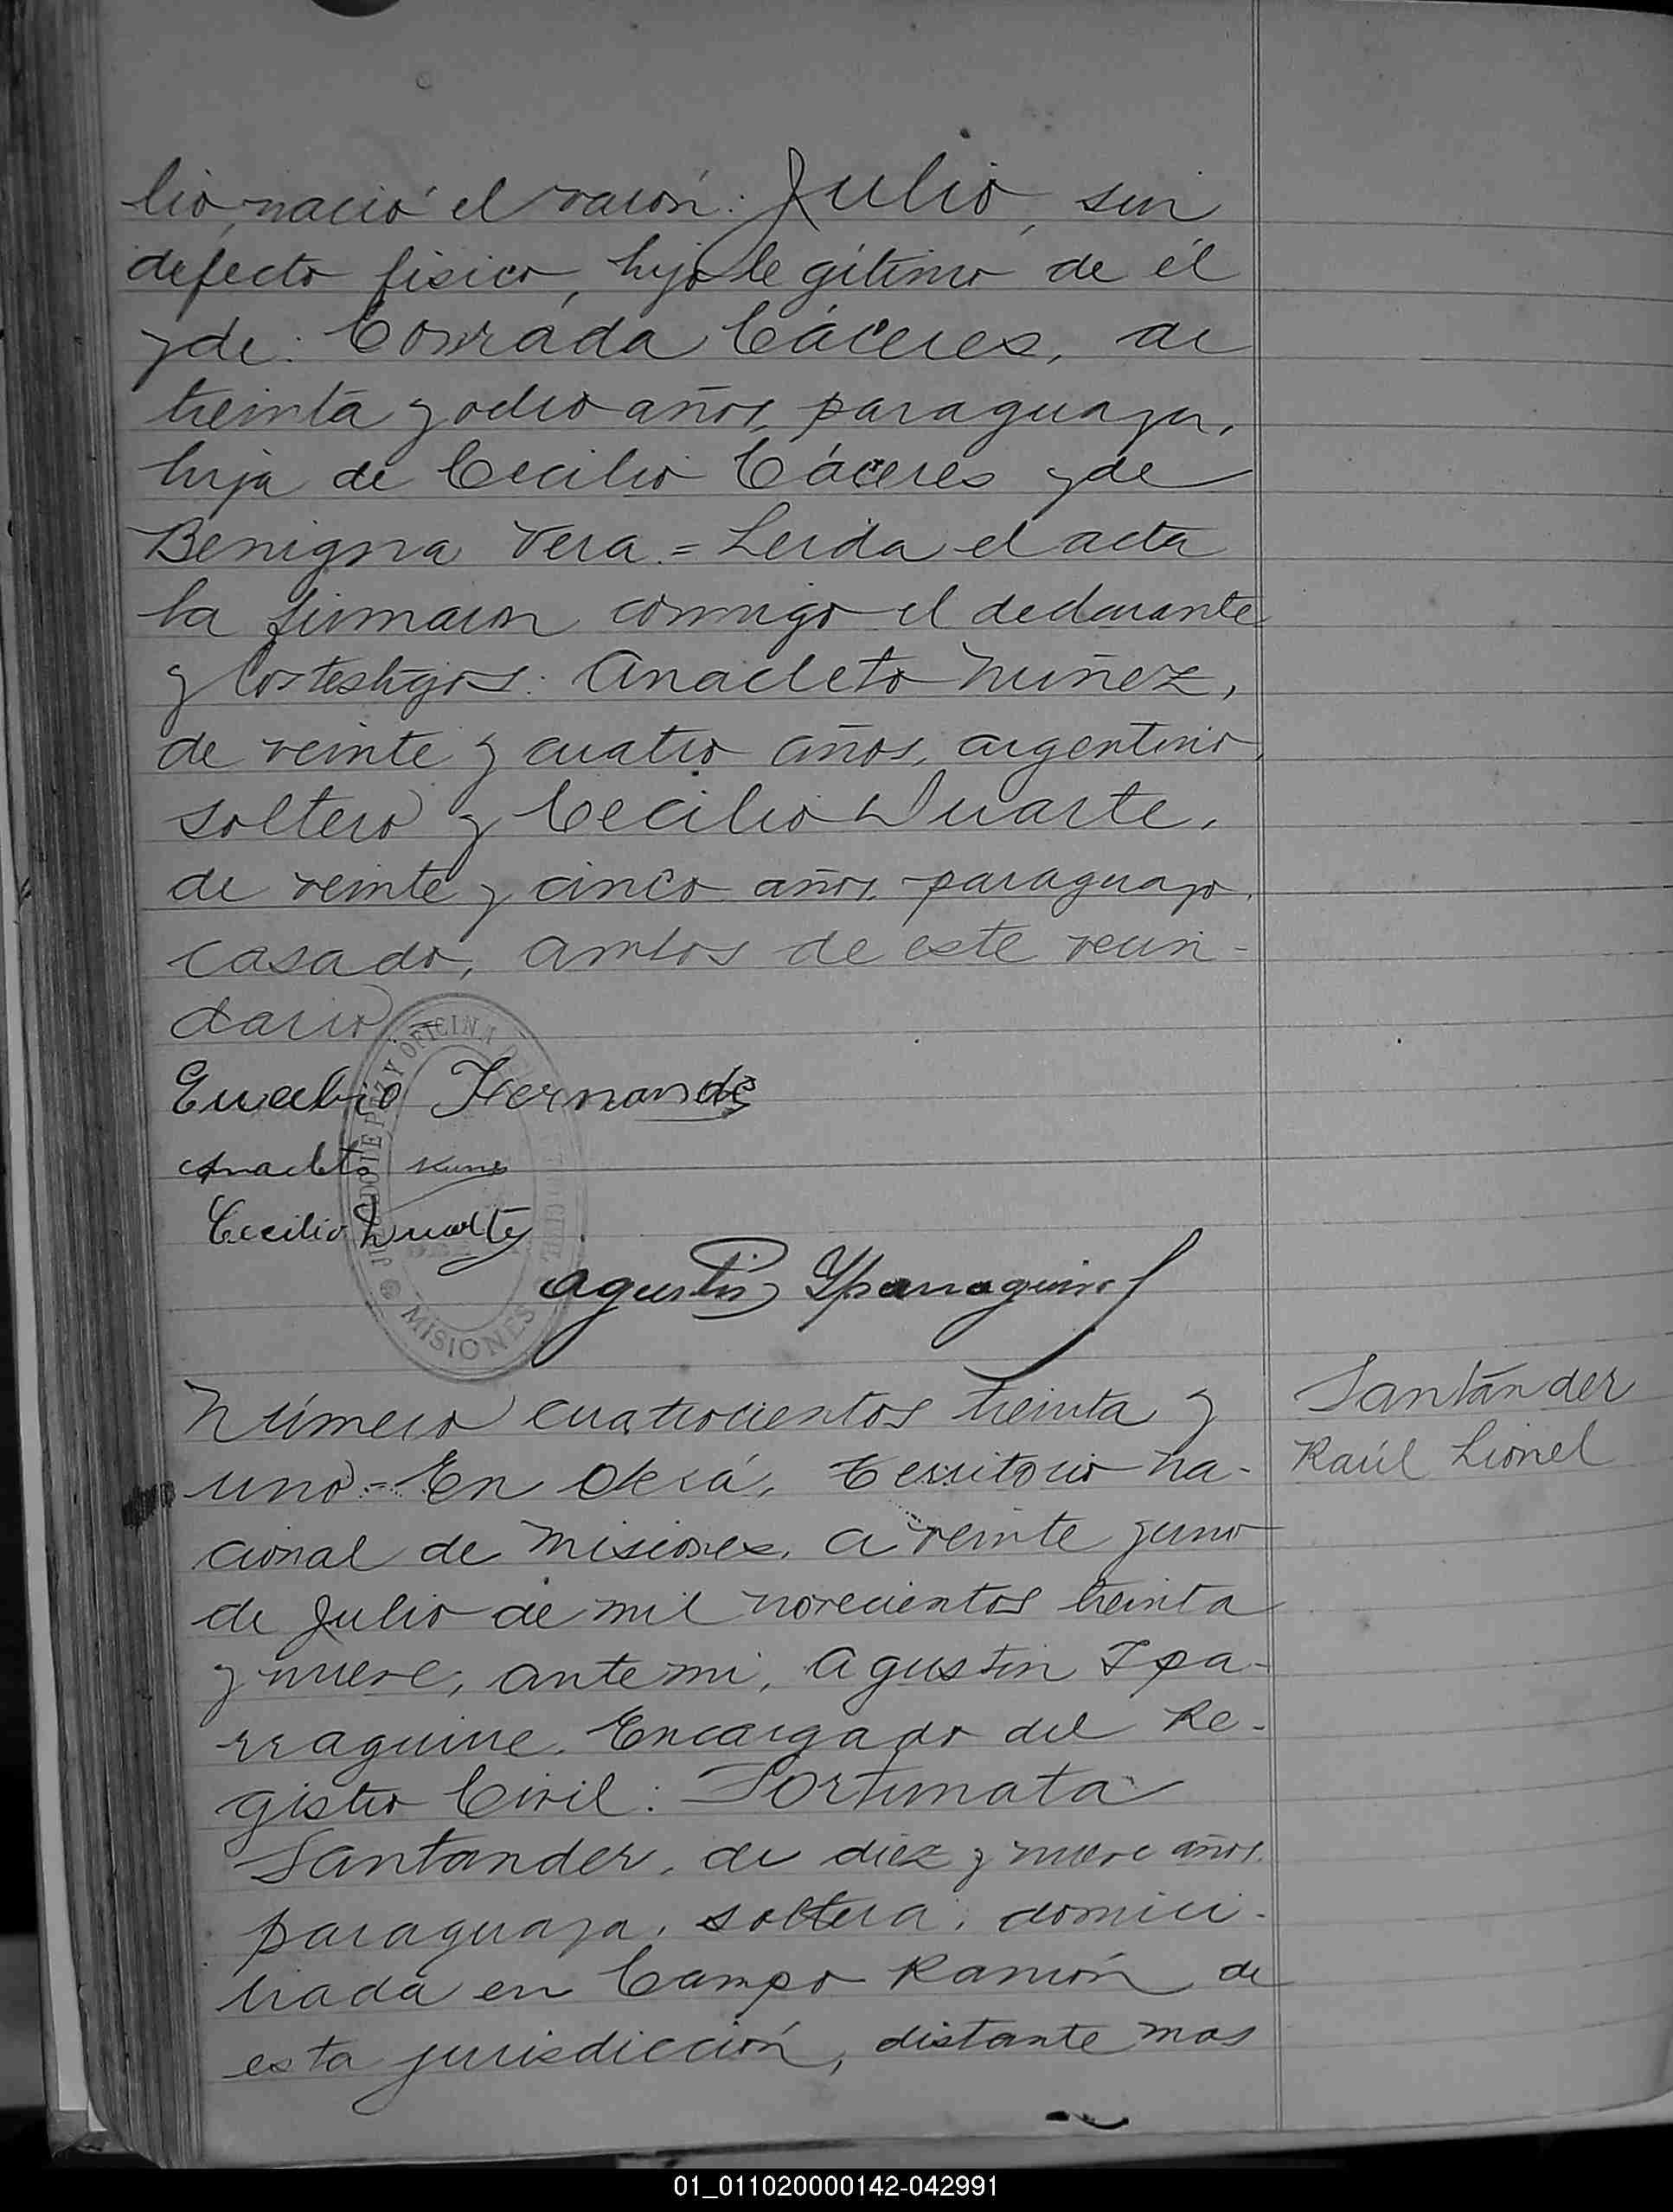 lio, nació el varón: Julio, sin
defecto físico, hijo legítimo de él
y de: Conrada Cáceres, de
treinta y ocho años, paraguaya,
hija de Cecilio Cáceres y de
Benigna Vera = Leida el acta
la firmaron conmigo el declarante
y los testigos: Anacleto Nuñez,
de veinte y cuatro años, argentino,
soltero y Cecilio Duarte,
de veinte y cinco años, paraguayo,
casado, ambos de este vecin-
dario =
Eusebio Hernandez
Anacleto Nunez
Cecilio Duarte
Agustin Yparraguirre
JUZGADO DE PAZ Y OFICINA
MISIONES
Número cuatrocientos treinta y
uno = En Oberá, Territorio Na-
cional de Misiones, a veinte y uno
de Julio de mil novecientos treinta
y nueve, ante mi, Agustin Ipa-
rraguirre, Encargado del Re-
gistro Civil: Fortunata
Santander, de diez y nueve años,
paraguaya, soltera, domici-
liada en Campo Ramón, de
esta jurisdicción, distante mas
Santánder
Raúl Lionel
01_011020000142-042991